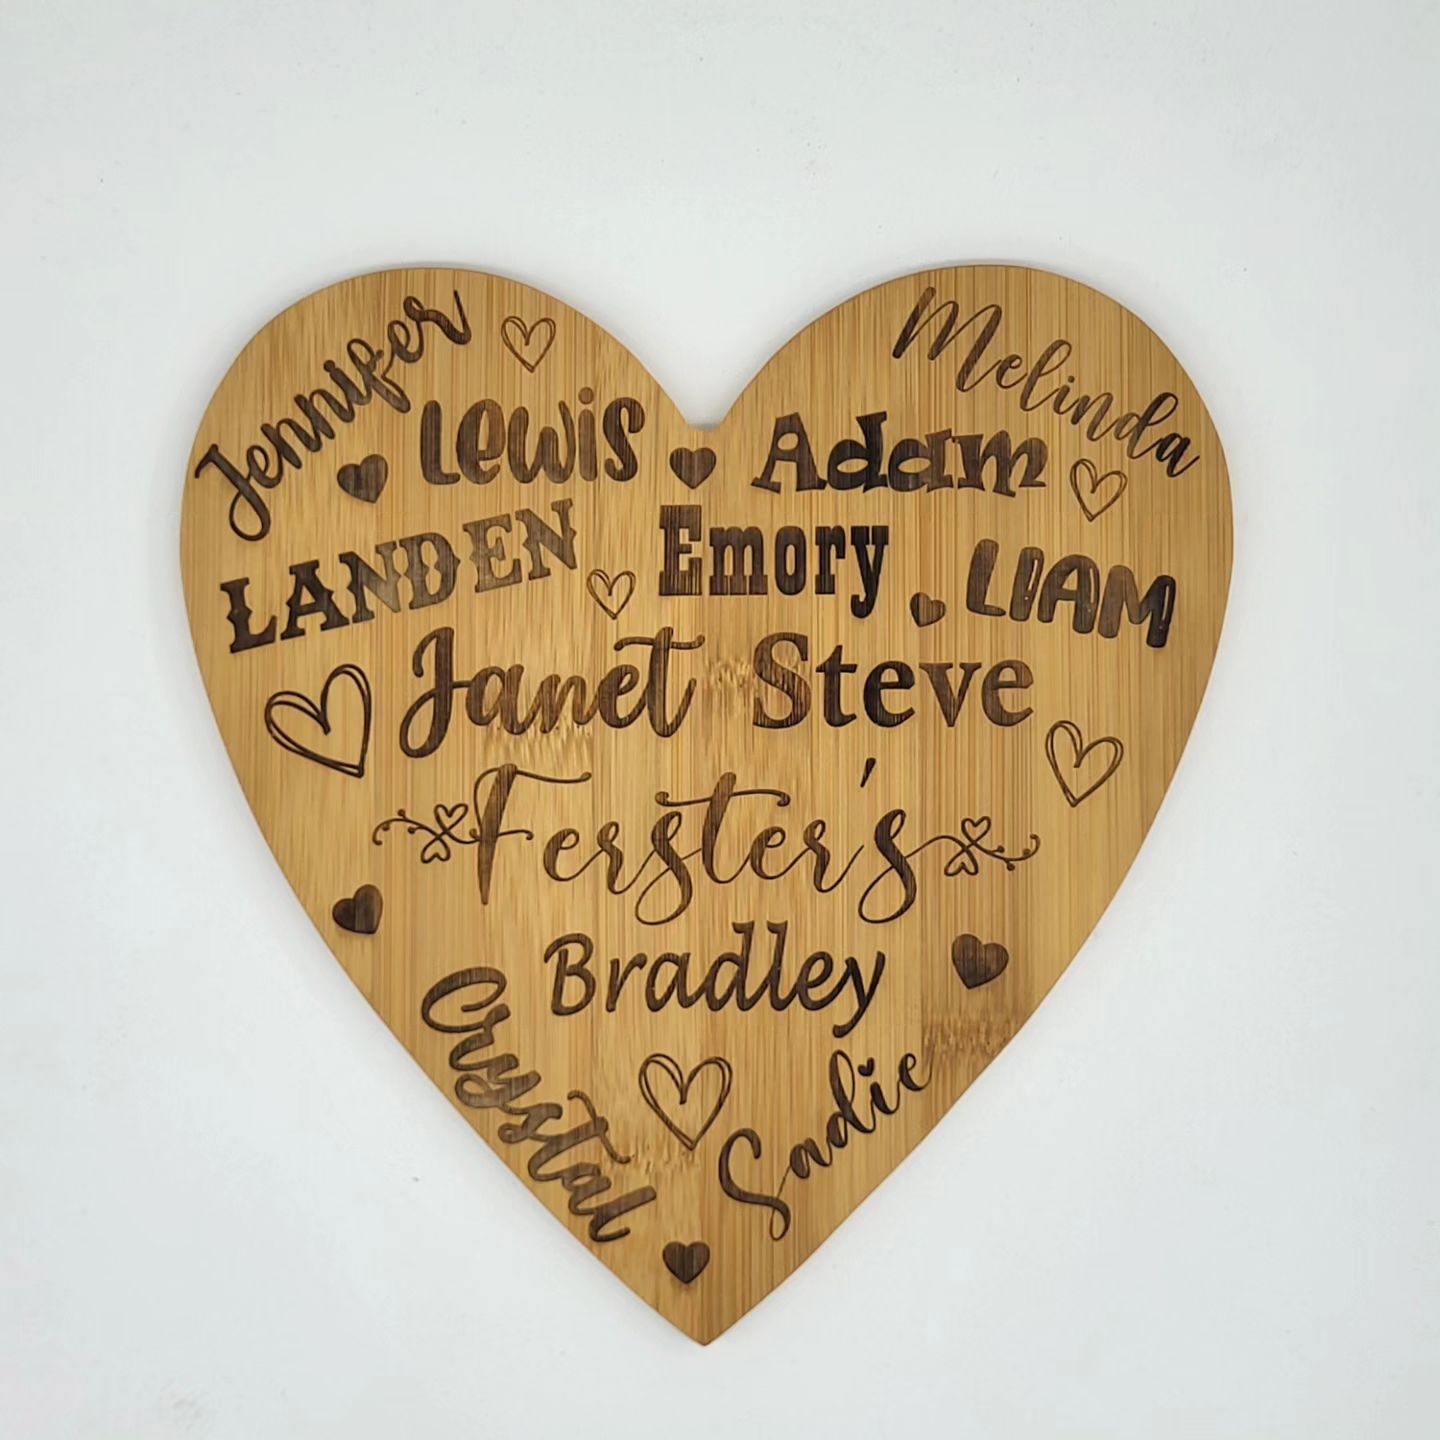 Jennifer
Melinda
Lewis
Adam
LANDEN
Emory
LIAM
Janet
Steve
Ferster's
Bradley
Crystal
Sadie